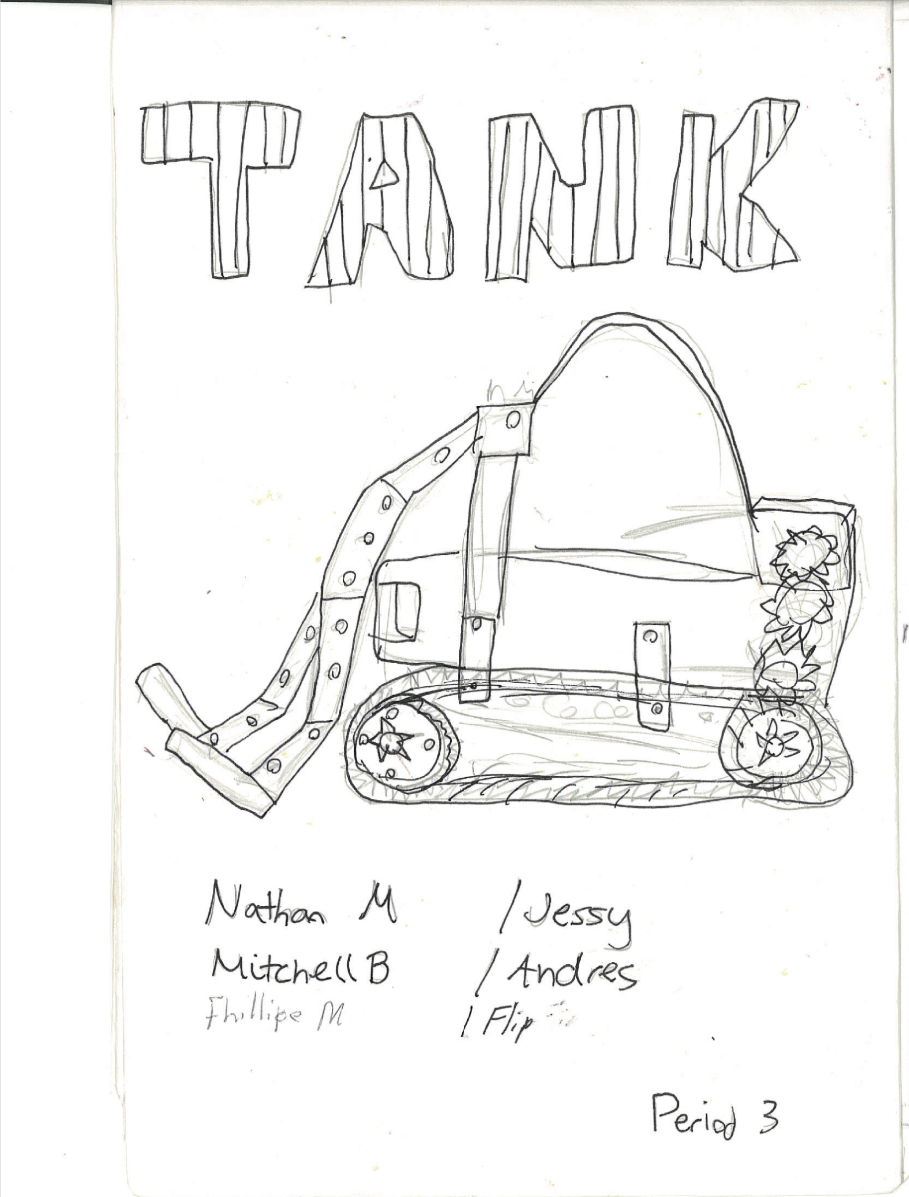 TANK
Nathan M / Jessy
Mitchell B / Andres
Fhillipe M / Flip
Period 3